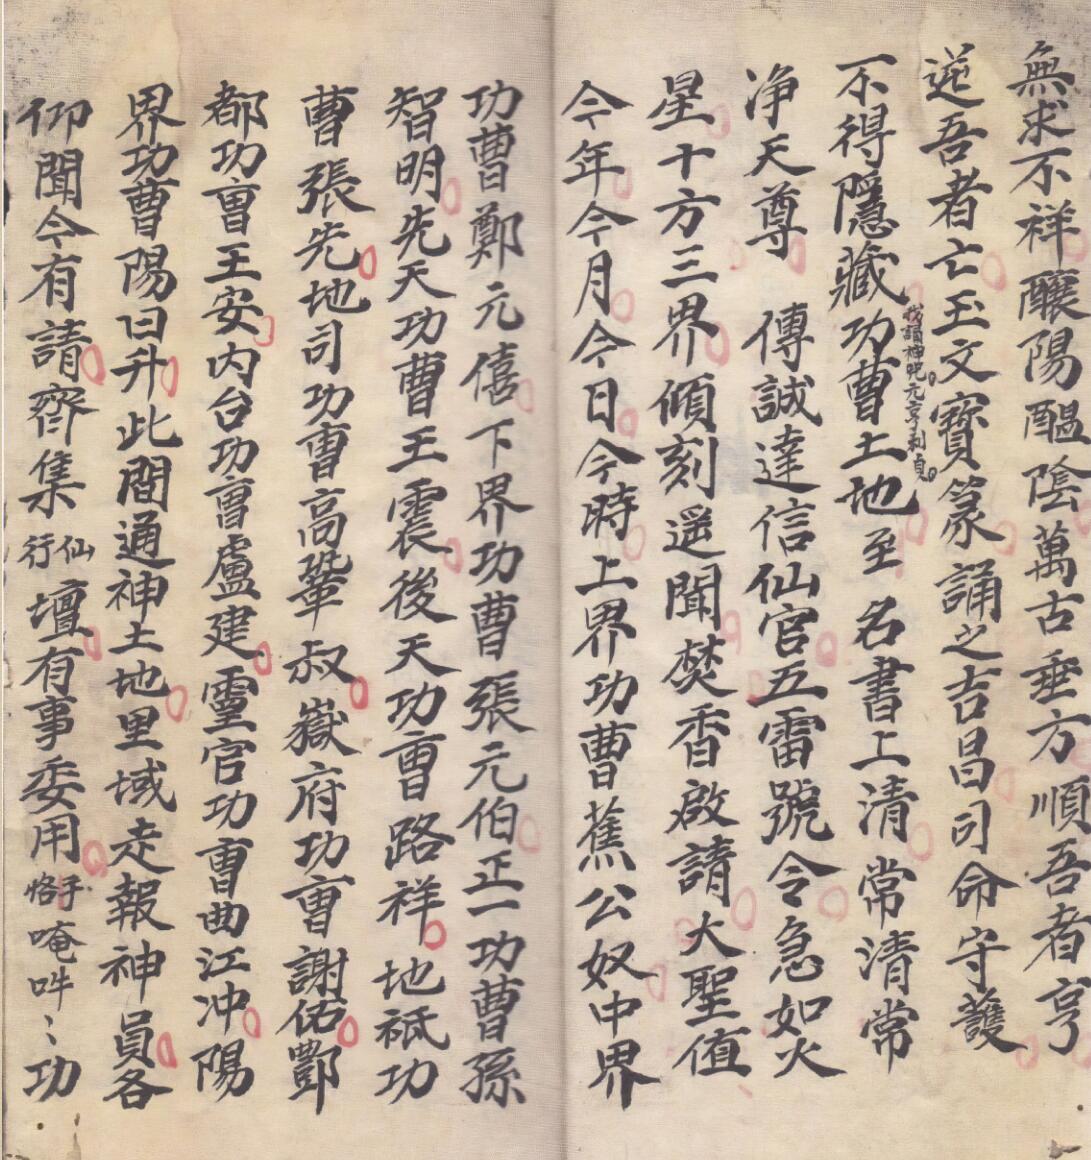 無求不祥釀陽醞陰萬古垂方順吾者亨
逆吾者亡玉文寶篆誦之吉昌司命守護
不得隱藏功曹土地至名書上清常清常
我誦神咒元亨利貞
净天尊 傳誠達信仙官五雷號令急如火
星十方三界傾刻遥聞焚香啟請大聖值
今年今月今日今時上界功曹蕉公奴中界
功曹鄭元僖下界功曹張元伯正一功曹孫
智明先天功曹王震後天功曹路祥地祇功
曹張先地司功曹高鞏叔嶽府功曹謝佑酆
都功曹王安内台功曹盧建靈官功曹曲江冲陽
界功曹陽日升此間通神土地里域走報神員各
仰聞今有請齊集仙行壇有事委用子恪唵吽〻功